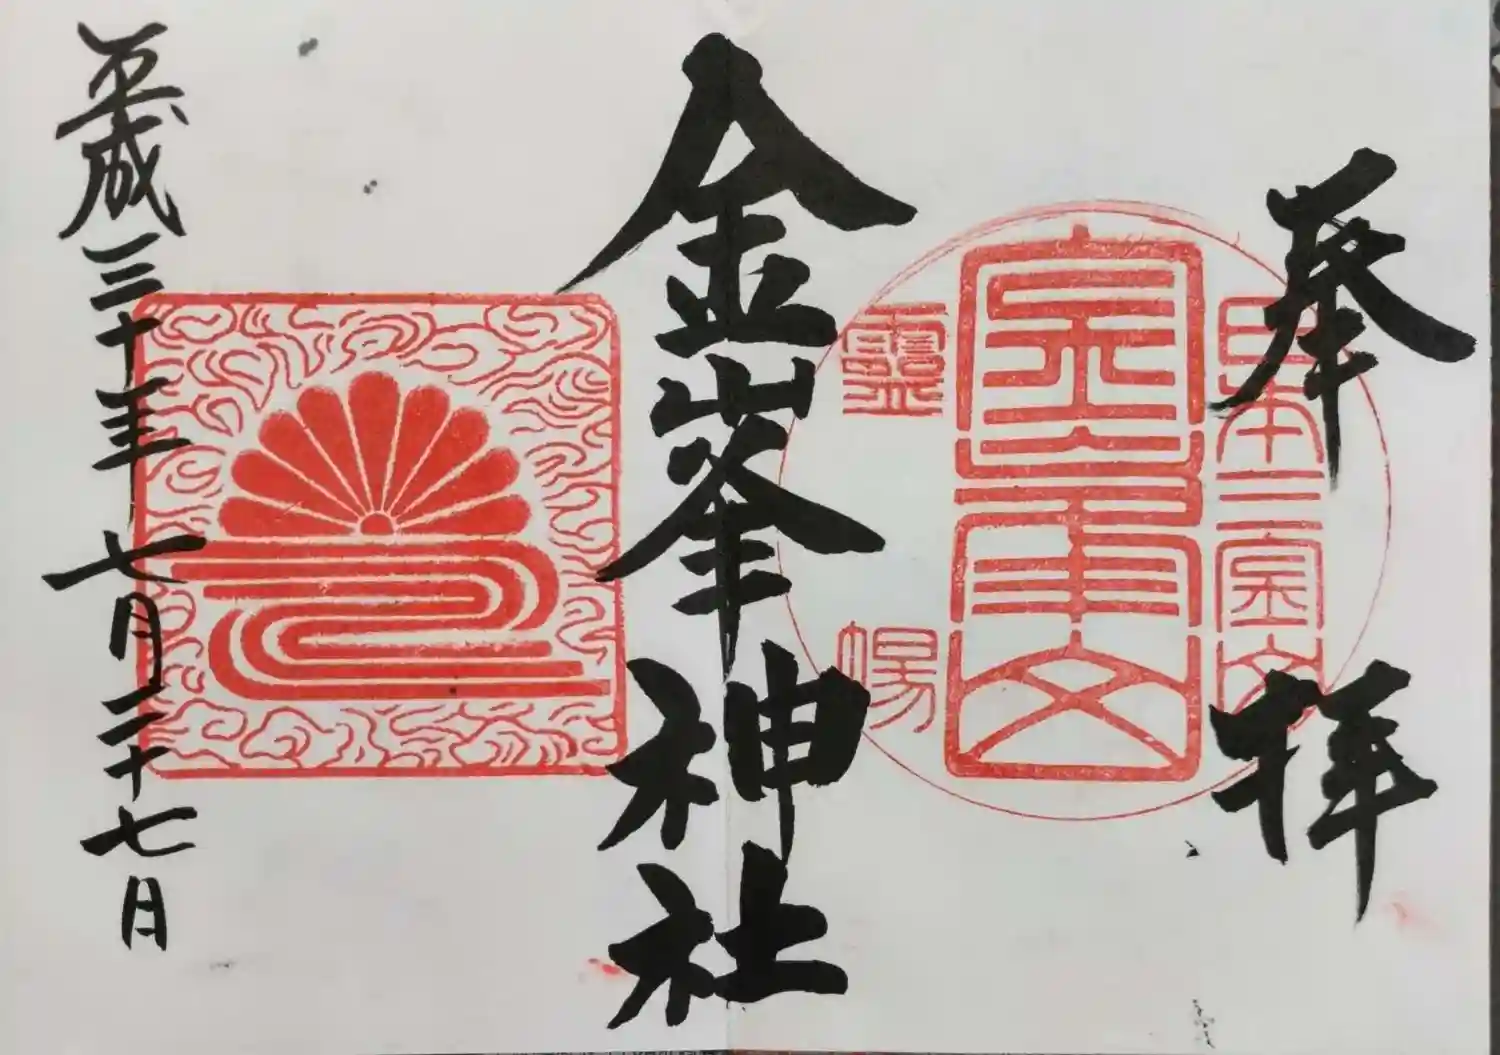 奉拝
日本三宝文
靈
場
金峯神社
平成三十年七月二十七日